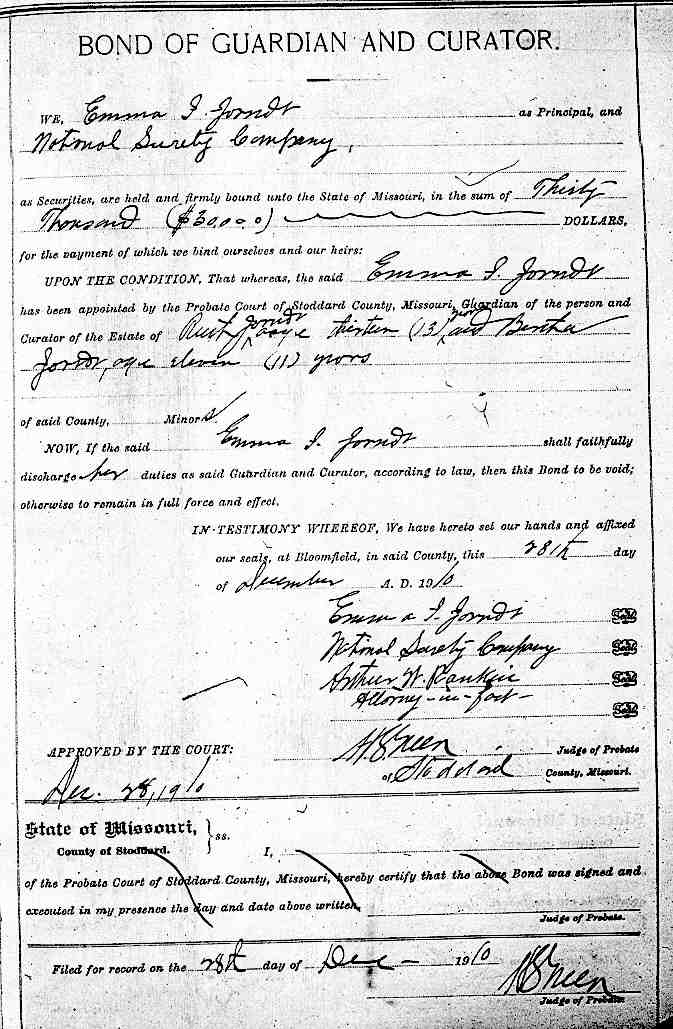 BOND OF GUARDIAN AND CURATOR.
WE, Emma I. Jorndt as Principal, and
National Surety Company,
as Securities, are held and firmly bound unto the State of Missouri, in the sum of Thirty
Thousand ($30,000) DOLLARS,
for the payment of which we bind ourselves and our heirs:
UPON THE CONDITION, That whereas, the said Emma I. Jorndt
has been appointed by the Probate Court of Stoddard County, Missouri, Guardian of the person and
Curator of the Estate of Jorndt age thirteen (13) years and Bertha
Jorndt, age eleven (11) years
of said County, Minors.
NOW, If the said Emma I. Jorndt shall faithfully
discharge her duties as said Guardian and Curator, according to law, then this Bond to be void;
otherwise to remain in full force and effect.
IN TESTIMONY WHEREOF, We have hereto set our hands and affixed
our seals, at Bloomfield, in said County, this 28th day
of December A. D. 1910
Emma I. Jorndt Seal
National Surety Company Seal
Arthur W. Rankin Seal
Attorney-in-fact Seal
APPROVED BY THE COURT: Green Judge of Probate
of Stoddard County, Missouri.
Dec. 28, 1910
State of Missouri, } ss.
County of Stoddard. I,
of the Probate Court of Stoddard County, Missouri, hereby certify that the above Bond was signed and
executed in my presence the day and date above written.
Judge of Probate.
Filed for record on the 28th day of Dec 1910
Green
Judge of Probate.